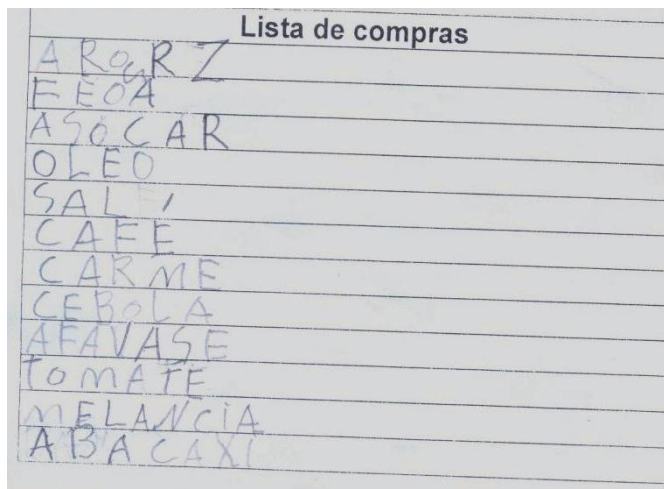 Lista de compras
AROSRZ
FEOA
ASOCAR
OLEO
SAL
CAFÉ
CARME
CEBOLA
AFAVASE
TOMATE
MELANCIA
ABACAXI